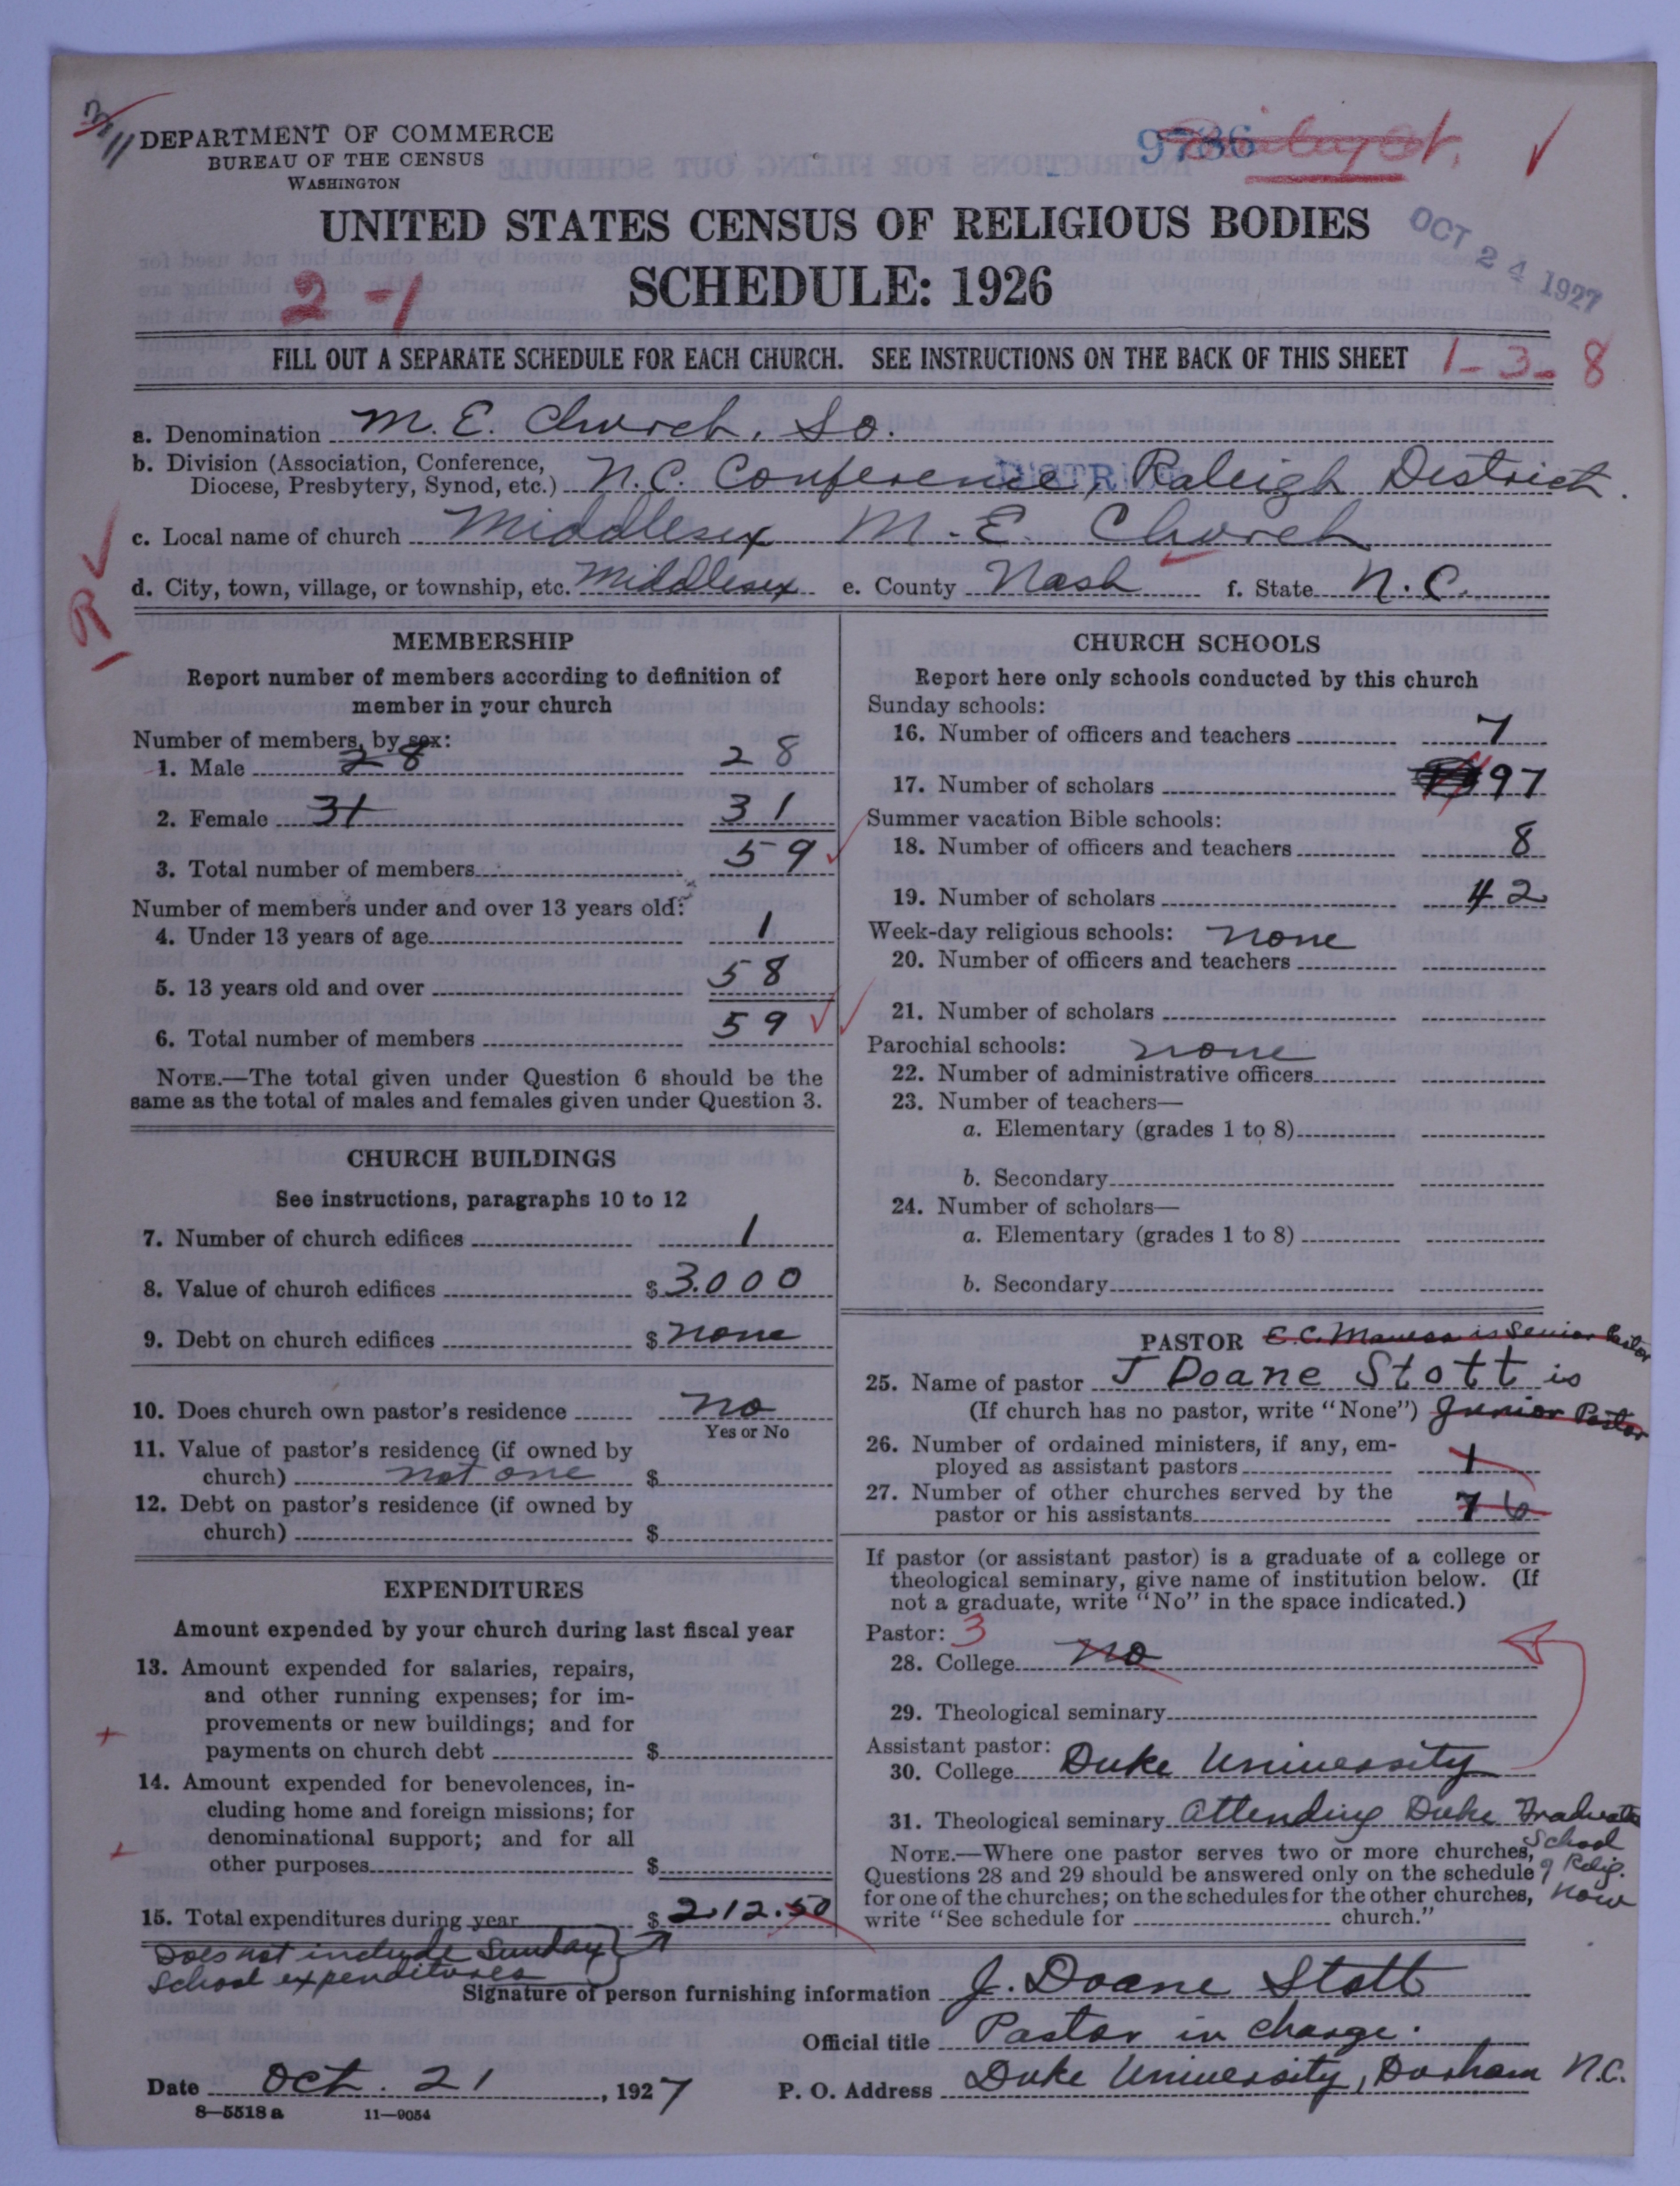 DEPARTMENT OF COMMERCE
BUREAU OF THE CENSUS
WASHINGTON
9736
UNITED STATES CENSUS OF RELIGIOUS BODIES
SCHEDULE: 1926
OCT 24 1927
2-1
FILL OUT A SEPARATE SCHEDULE FOR EACH CHURCH. SEE INSTRUCTIONS ON THE BACK OF THIS SHEET 1-3-8
a. Denomination M. E. Church, So.
b. Division (Association, Conference, Diocese, Presbytery, Synod, etc.) N.C. Conference, Raleigh District.
DISTRICT
c. Local name of church Middlesex M. E. Church
d. City, town, village, or township, etc. Middlesex e. County Nash f. State N.C.
R
MEMBERSHIP
Report number of members according to definition of
member in your church
Number of members, by sex:
1. Male 28 28
2. Female 31 31
3. Total number of members 59
Number of members under and over 13 years old:
4. Under 13 years of age 1
5. 13 years old and over 58
6. Total number of members 59
NOTE.—The total given under Question 6 should be the
same as the total of males and females given under Question 3.
CHURCH BUILDINGS
See instructions, paragraphs 10 to 12
7. Number of church edifices 1
8. Value of church edifices $ 3.000
9. Debt on church edifices $ none
10. Does church own pastor's residence no
Yes or No
11. Value of pastor's residence (if owned by
church) not one $
12. Debt on pastor's residence (if owned by
church) $
EXPENDITURES
Amount expended by your church during last fiscal year
13. Amount expended for salaries, repairs,
and other running expenses; for im-
provements or new buildings; and for
payments on church debt $
14. Amount expended for benevolences, in-
cluding home and foreign missions; for
denominational support; and for all
other purposes $
15. Total expenditures during year $ 212.50
Does not include Sunday
School expenditures
CHURCH SCHOOLS
Report here only schools conducted by this church
Sunday schools:
16. Number of officers and teachers 7
17. Number of scholars 97
Summer vacation Bible schools:
18. Number of officers and teachers 8
19. Number of scholars 42
Week-day religious schools: none
20. Number of officers and teachers
21. Number of scholars
Parochial schools: none
22. Number of administrative officers
23. Number of teachers—
a. Elementary (grades 1 to 8)
b. Secondary
24. Number of scholars—
a. Elementary (grades 1 to 8)
b. Secondary
PASTOR E.C. Maness is Senior Pastor
25. Name of pastor J Doane Stott is
(If church has no pastor, write "None") Junior Pastor
26. Number of ordained ministers, if any, em-
ployed as assistant pastors 1
27. Number of other churches served by the
pastor or his assistants 7 6
If pastor (or assistant pastor) is a graduate of a college or
theological seminary, give name of institution below. (If
not a graduate, write "No" in the space indicated.)
Pastor: 3
28. College no
29. Theological seminary
Assistant pastor:
30. College Duke University
31. Theological seminary attending Duke Graduate
School
of Relig.
now
NOTE.—Where one pastor serves two or more churches,
Questions 28 and 29 should be answered only on the schedule
for one of the churches; on the schedules for the other churches,
write "See schedule for church."
Signature of person furnishing information J. Doane Stott
Official title Pastor in charge.
Date Oct. 21, 1927 P. O. Address Duke University, Durham N.C.
8—5518 a 11—9054